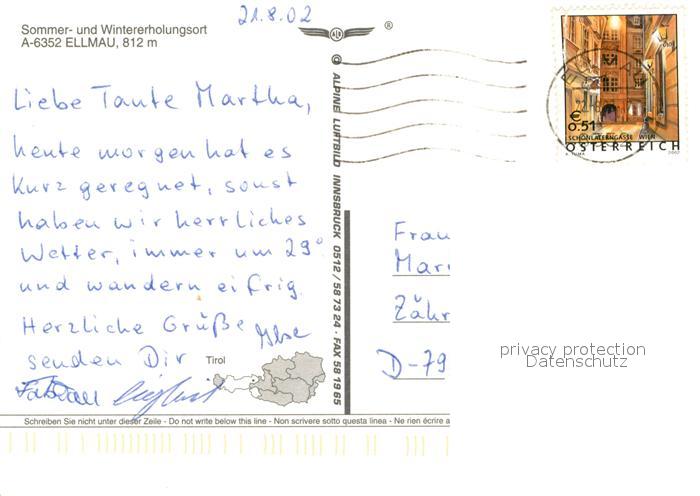 21.8.02
Sommer- und Wintererholungsort
A-6352 ELLMAU, 812 m
®
Liebe Tante Martha,
heute morgen hat es
kurz geregnet, sonst
haben wir herrliches
Wetter, immer um 29°
und wandern eifrig.
Herzliche Grüße
senden Dir Ilse
Tirol
© ALPINE LUFTBILD INNSBRUCK 0512 / 58 73 24 · FAX 58 19 65
€
0.51
SCHÖNLATERNGASSE WIEN
ÖSTERREICH
2002
Frau
Mar
Zähr
D-79
privacy protection
Datenschutz
Schreiben Sie nicht unter dieser Zeile - Do not write below this line - Non scrivere sotto questa linea - Ne rien écrire a